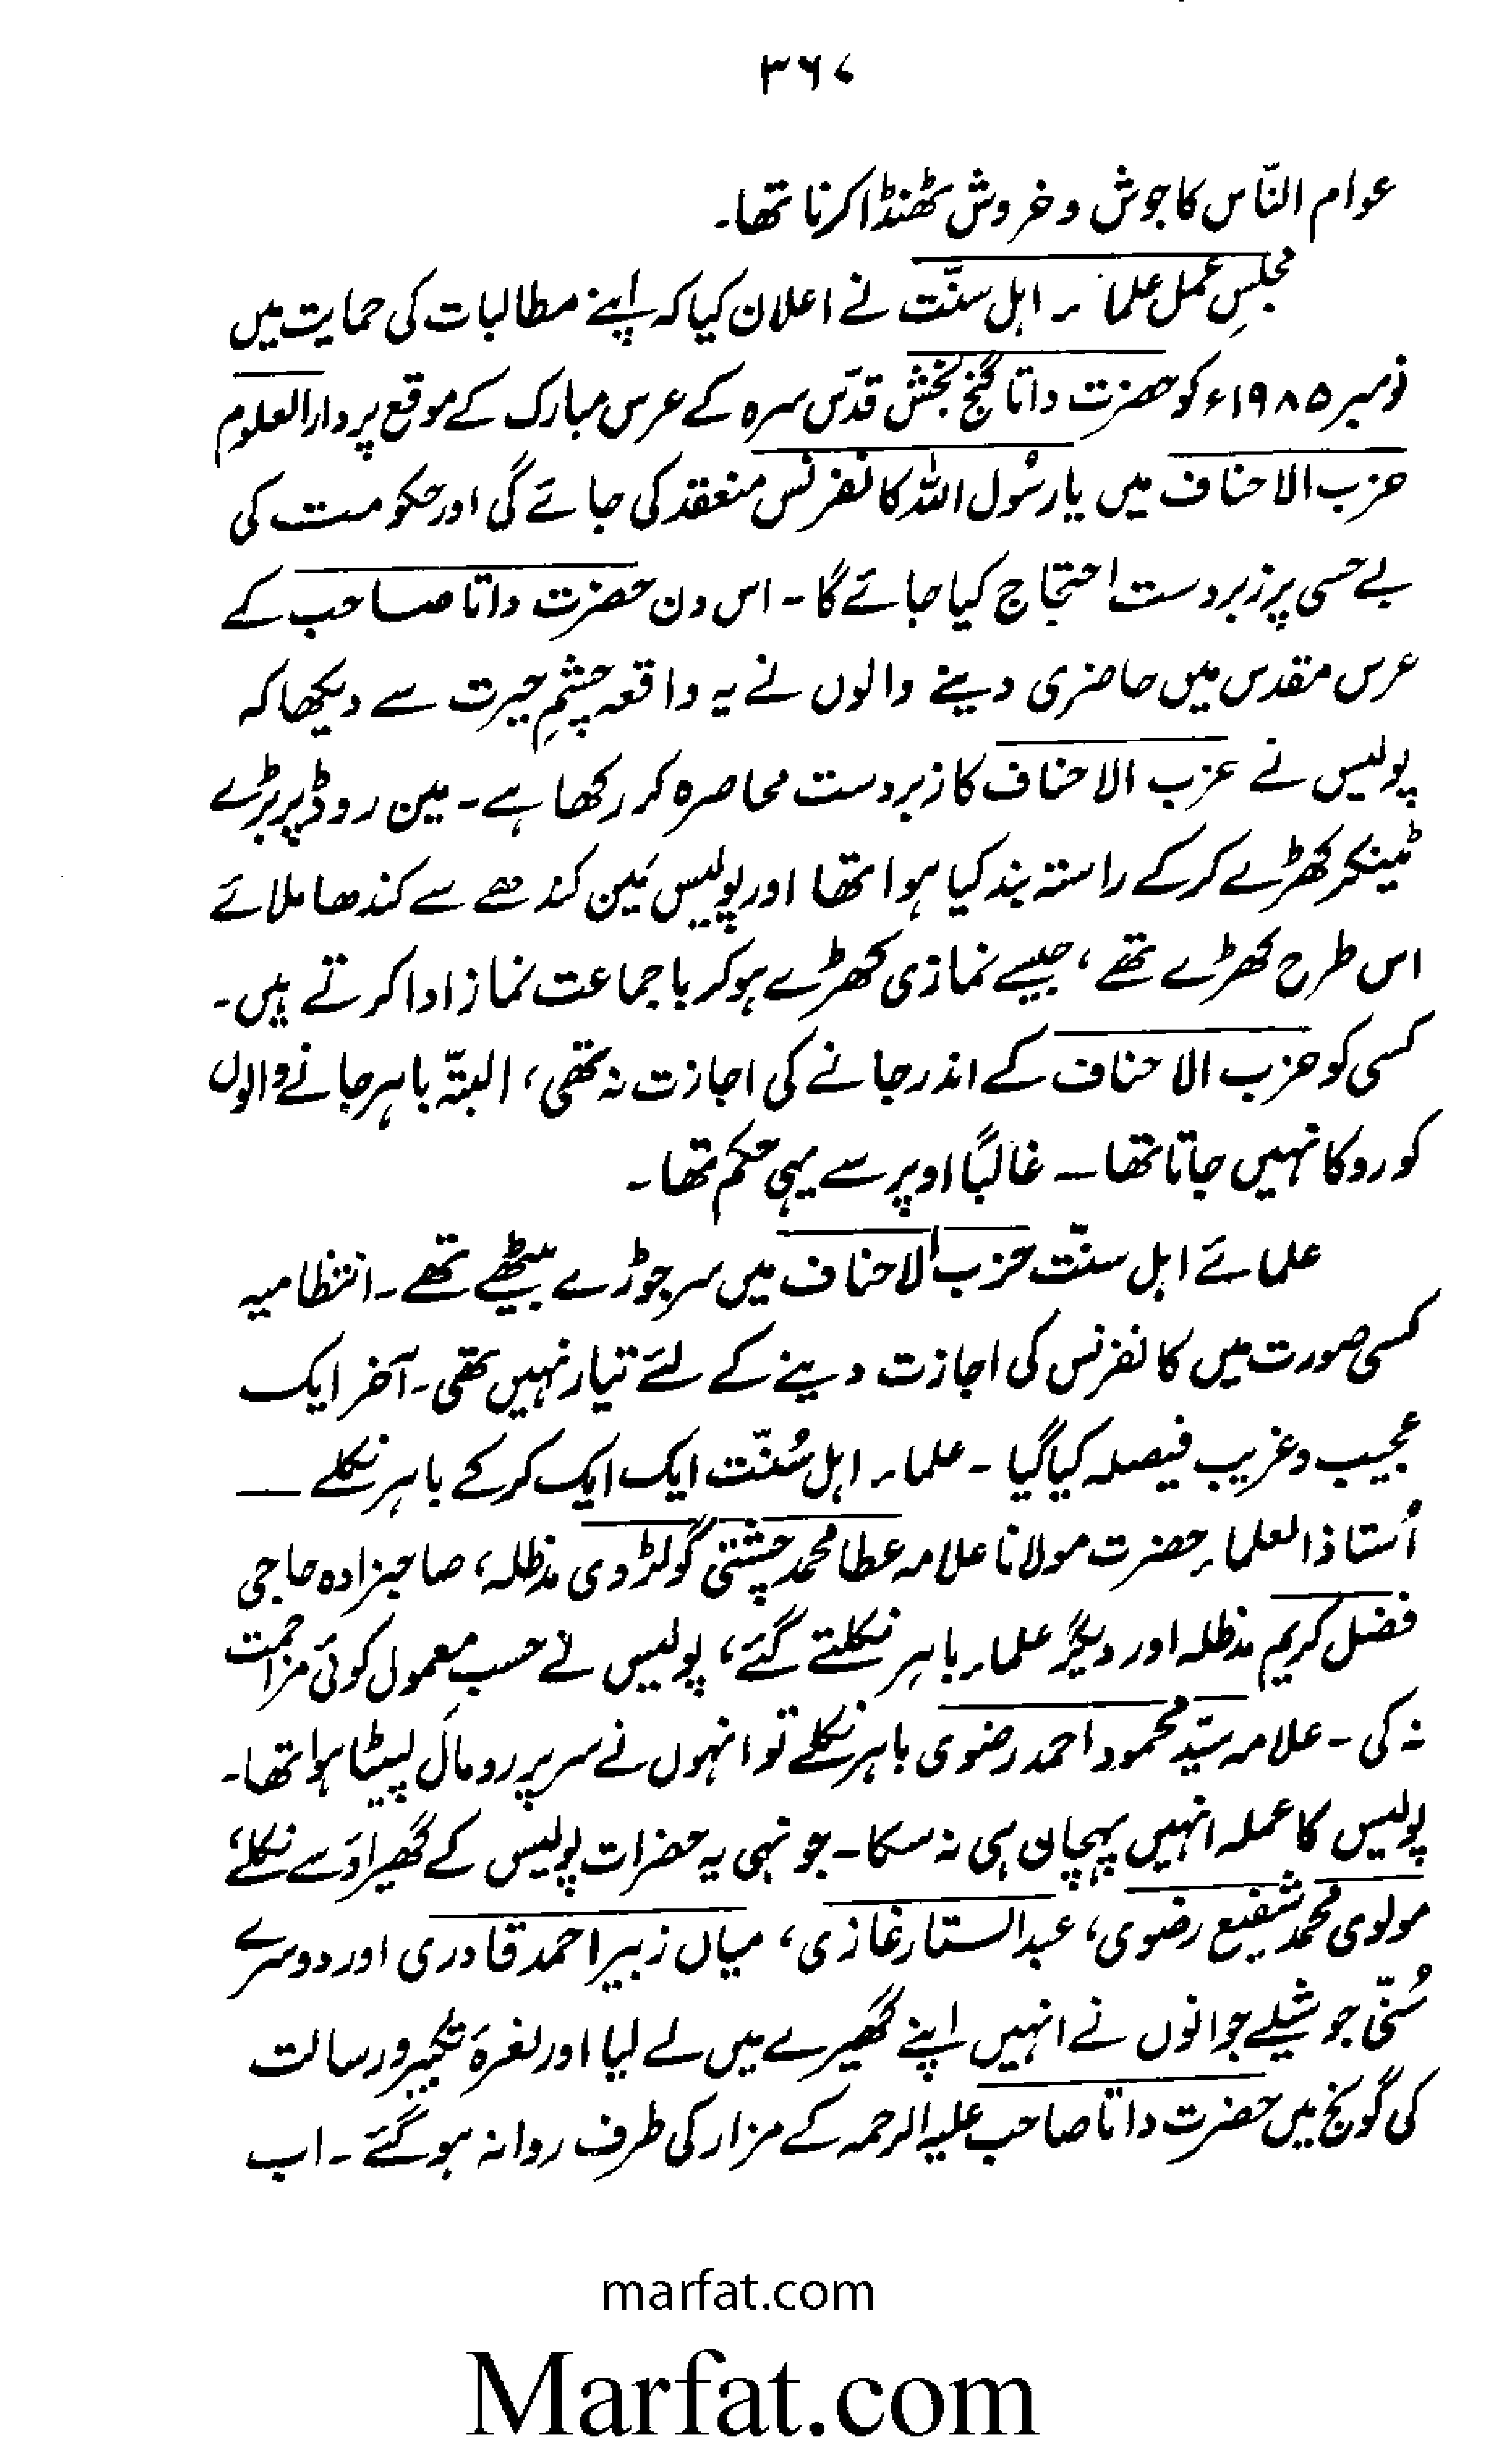 ۳۶۷
عوام النّاس کا جوش و خروش ٹھنڈا کرنا تھا۔
مجلسِ عمل علماء اہل سنّت نے اعلان کیا کہ اپنے مطالبات کی حمایت میں
نومبر ۱۹۸۵ء کو حضرت داتا گنج بخش قدّس سرہ کے عرس مبارک کے موقع پر دارالعلوم
حزب الاحناف میں یا رسُول اللہ کانفرنس منعقد کی جائے گی اور حکومت کی
بے حسی پر زبردست احتجاج کیا جائے گا۔ اس دن حضرت داتا صاحب کے
عرس مقدس میں حاضری دینے والوں نے یہ واقعہ چشمِ حیرت سے دیکھا کہ
پولیس نے عزب الاحناف کا زبردست محاصرہ کر رکھا ہے۔ مین روڈ پر بڑے
ٹینکر کھڑے کر کے راستہ بند کیا ہوا تھا اور پولیس مَین کندھے سے کندھا ملائے
اس طرح کھڑے تھے، جیسے نمازی کھڑے ہو کر باجماعت نماز ادا کرتے ہیں۔
کسی کو حزب الاحناف کے اندر جانے کی اجازت نہ تھی، البتہّ باہر جانے والوں
کو روکا نہیں جاتا تھا ــ غالبًا اوپر سے یہی حکم تھا۔
علمائے اہل سنّت حزب الاحناف میں سر جوڑے بیٹھے تھے۔ انتظامیہ
کسی صورت میں کانفرنس کی اجازت دینے کے لئے تیار نہیں تھی۔ آخر ایک
عجیب و غریب فیصلہ کیا گیا ۔ علماء اہل سُنّت ایک ایک کر کے باہر نکلے ــ
اُستاذ العلماء حضرت مولانا علامہ عطا محمد چشتی گولڑوی مدظلہ، صاحبزادہ حاجی
فضل کریم مدظلہ اور دیگر علماء باہر نکلتے گئے، پولیس نے حسب معمول کوئی مزاحمت
نہ کی ۔ علامہ سیّد محمود احمد رضوی باہر نکلے تو انہوں نے سر پر رومال لپیٹا ہوا تھا۔
پولیس کا عملہ انہیں پہچان ہی نہ سکا۔ جونہی یہ حضرات پولیس کے گھیراؤ سے نکلے،
مولوی محمد شفیع رضوی، عبدالستار غازی، میاں زبیر احمد قادری اور دوسرے
سُنّی جوشیلے جوانوں نے انہیں اپنے گھیرے میں لے لیا اور نعرۂ تکبیر و رسالت
کی گونج میں حضرت داتا صاحب علیہ الرحمہ کے مزار کی طرف روانہ ہو گئے ۔ اب
marfat.com
Marfat.com